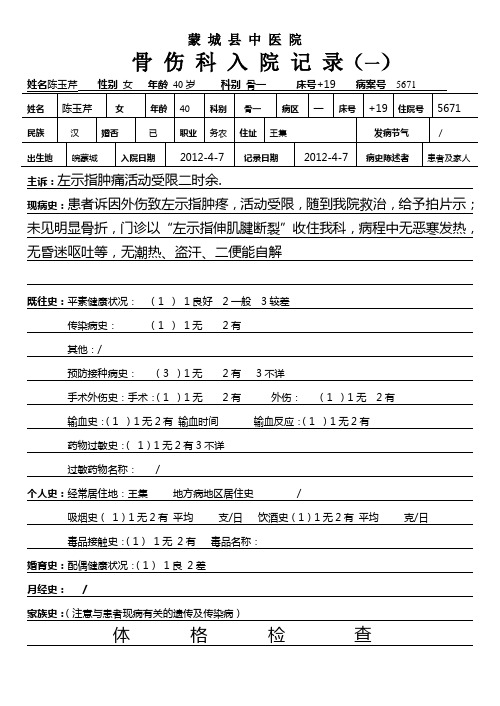 蒙 城 县 中 医 院
骨 伤 科 入 院 记 录（一）
姓名陈玉芹 性别 女 年龄 40 岁 科别 骨一 床号+19 病案号 5671
姓名 陈玉芹 女 年龄 40 科别 骨一 病区 一 床号 +19 住院号 5671
民族 汉 婚否 已 职业 务农 住址 王集 发病节气 /
出生地 皖蒙城 入院日期 2012-4-7 记录日期 2012-4-7 病史陈述者 患者及家人
主诉：左示指肿痛活动受限二时余.
现病史：患者诉因外伤致左示指肿疼，活动受限，随到我院救治，给予拍片示；
未见明显骨折，门诊以“左示指伸肌腱断裂”收住我科，病程中无恶寒发热，
无昏迷呕吐等，无潮热、盗汗、二便能自解
既往史：平素健康状况： （1 ） 1良好 2一般 3较差
传染病史： （1 ） 1无 2有
其他：/
预防接种病史： （3 ）1无 2有 3不详
手术外伤史：手术：（1 ）1无 2有 外伤： （1 ）1无 2有
输血史：（1 ）1无2有 输血时间 输血反应：（1 ）1无2有
药物过敏史：（ 1）1无2有3不详
过敏药物名称： /
个人史：经常居住地：王集 地方病地区居住史 /
吸烟史（ 1）1无2有 平均 支/日 饮酒史（1）1无2有 平均 克/日
毒品接触史：（1） 1无 2有 毒品名称：
婚育史：配偶健康状况：（1） 1良 2差
月经史： /
家族史：（注意与患者现病有关的遗传及传染病）
体 格 检 查